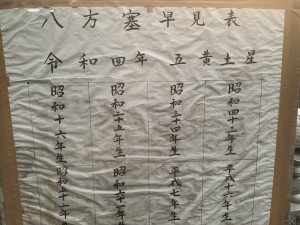 八方塞早見表
令和四年 五黄土星
昭和四十三年生
昭和三十四年生
昭和二十五年生
昭和十六年生
平成十六年生
平成七年生
昭和六十一年生
昭和五十二年生